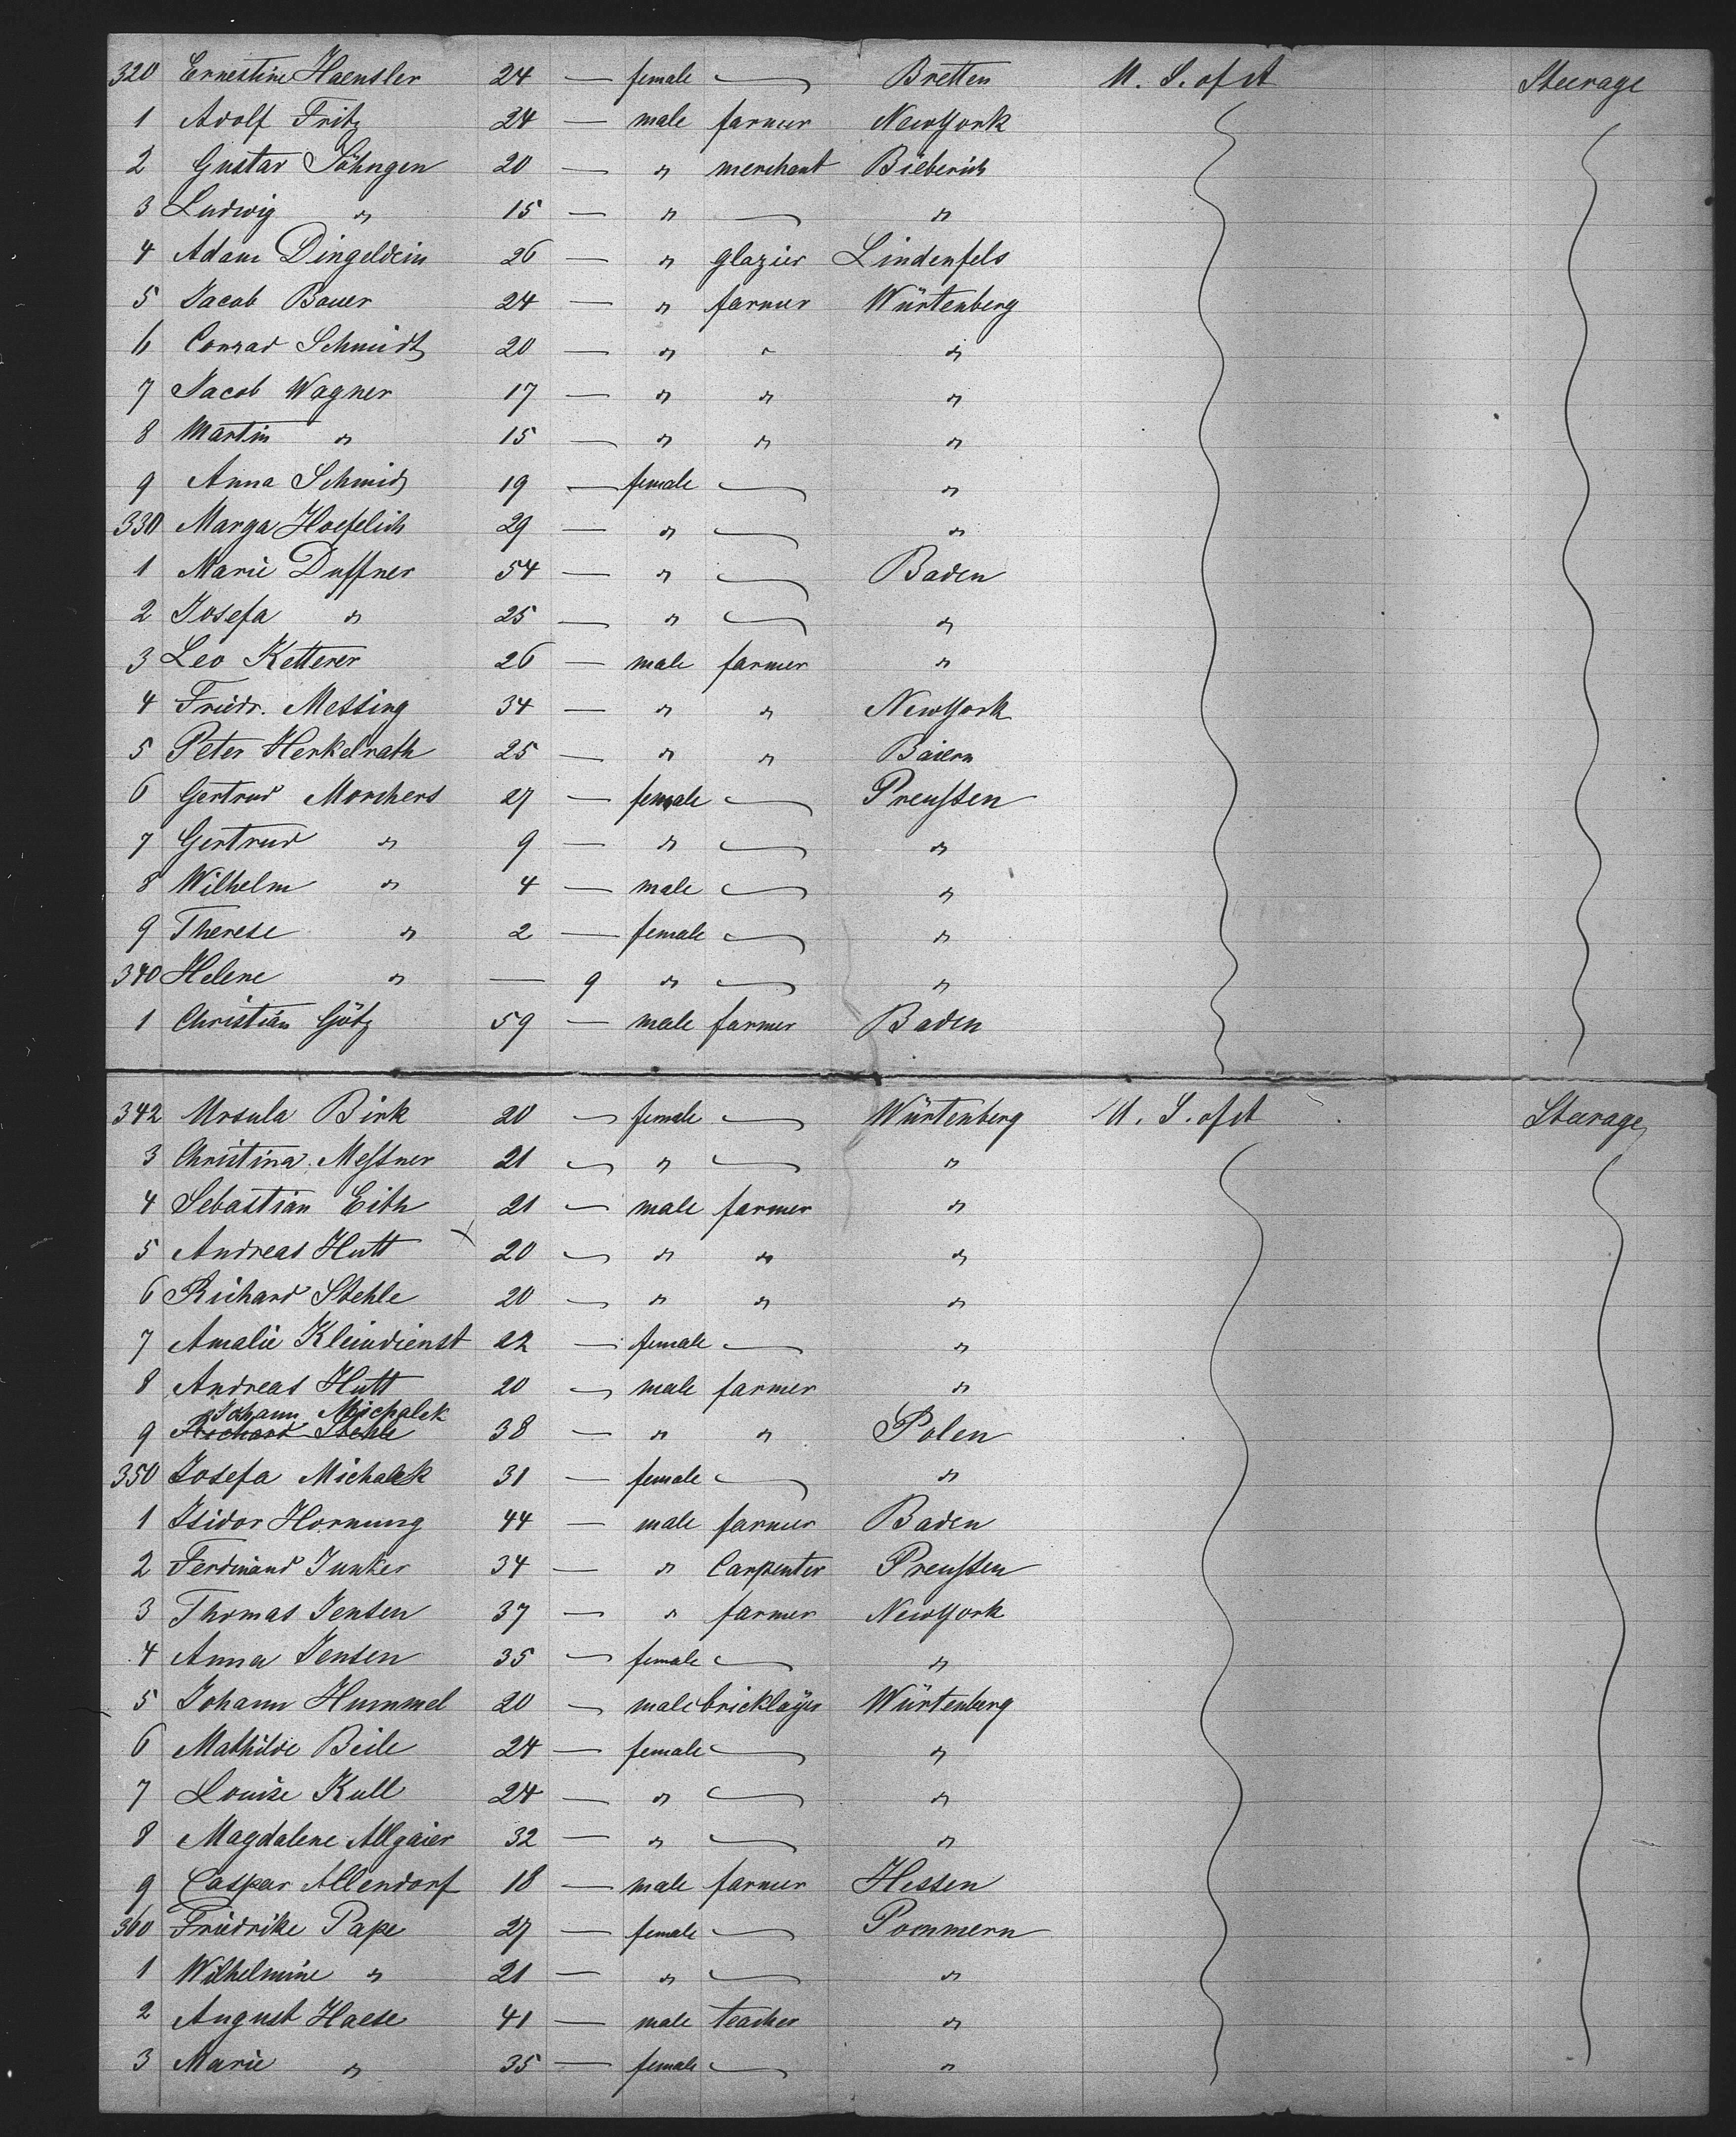 320 Ernestine Haensler 24 — female — Bretten U. S. of A Steerage
1 Adolf Fritz 24 — male farmer NewYork
2 Gustav Söhngen 20 — " merchant Bieberich
3 Ludwig " 15 — " — "
4 Adam Dingeldein 26 — " glazier Lindenfels
5 Jacob Bauer 24 — " farmer Würtenberg
6 Conrad Schmidt 20 — " " "
7 Jacob Wagner 17 — " " "
8 Martin " 15 — " " "
9 Anna Schmid 19 — female — "
330 Marga Hoefelich 29 — " — "
1 Marie Duffner 54 — " — Baden
2 Josefa " 25 — " — "
3 Leo Ketterer 26 — male farmer "
4 Friedr. Messing 34 — " " NewYork
5 Peter Herkelrath 25 — " " Baiern
6 Gertrud Morchers 27 — female — Preussen
7 Gertrud " 9 — " — "
8 Wilhelm " 4 — male — "
9 Therese " 2 — female — "
340 Helene " — 9 " — "
1 Christian Götz 59 — male farmer Baden
342 Ursula Birk 20 — female — Würtenberg U. S. of A Steerage
3 Christina Messner 21 — " — "
4 Sebastian Eith 21 — male farmer "
5 Andreas Hutt 20 — " " "
6 Richard Stehle 20 — " " "
7 Amalie Kleindienst 22 — female — "
8 Andreas Hutt 20 — male farmer "
Johann Michalek
9 Richard Stehle 38 — " " Polen
350 Josefa Michalek 31 — female — "
1 Isidor Hornung 44 — male farmer Baden
2 Ferdinand Junker 34 — " Carpenter Preussen
3 Thomas Jensen 37 — " farmer NewYork
4 Anna Jensen 35 — female — "
5 Johann Hummel 20 — male bricklayer Würtenberg
6 Mathilde Beile 24 — female — "
7 Louise Kull 24 — " — "
8 Magdalene Allgaier 32 — " — "
9 Caspar Allendorf 18 — male farmer Hessen
360 Friedrike Pape 27 — female — Pommern
1 Wilhelmine " 21 — " — "
2 August Haese 41 — male teacher "
3 Marie " 35 — female — "